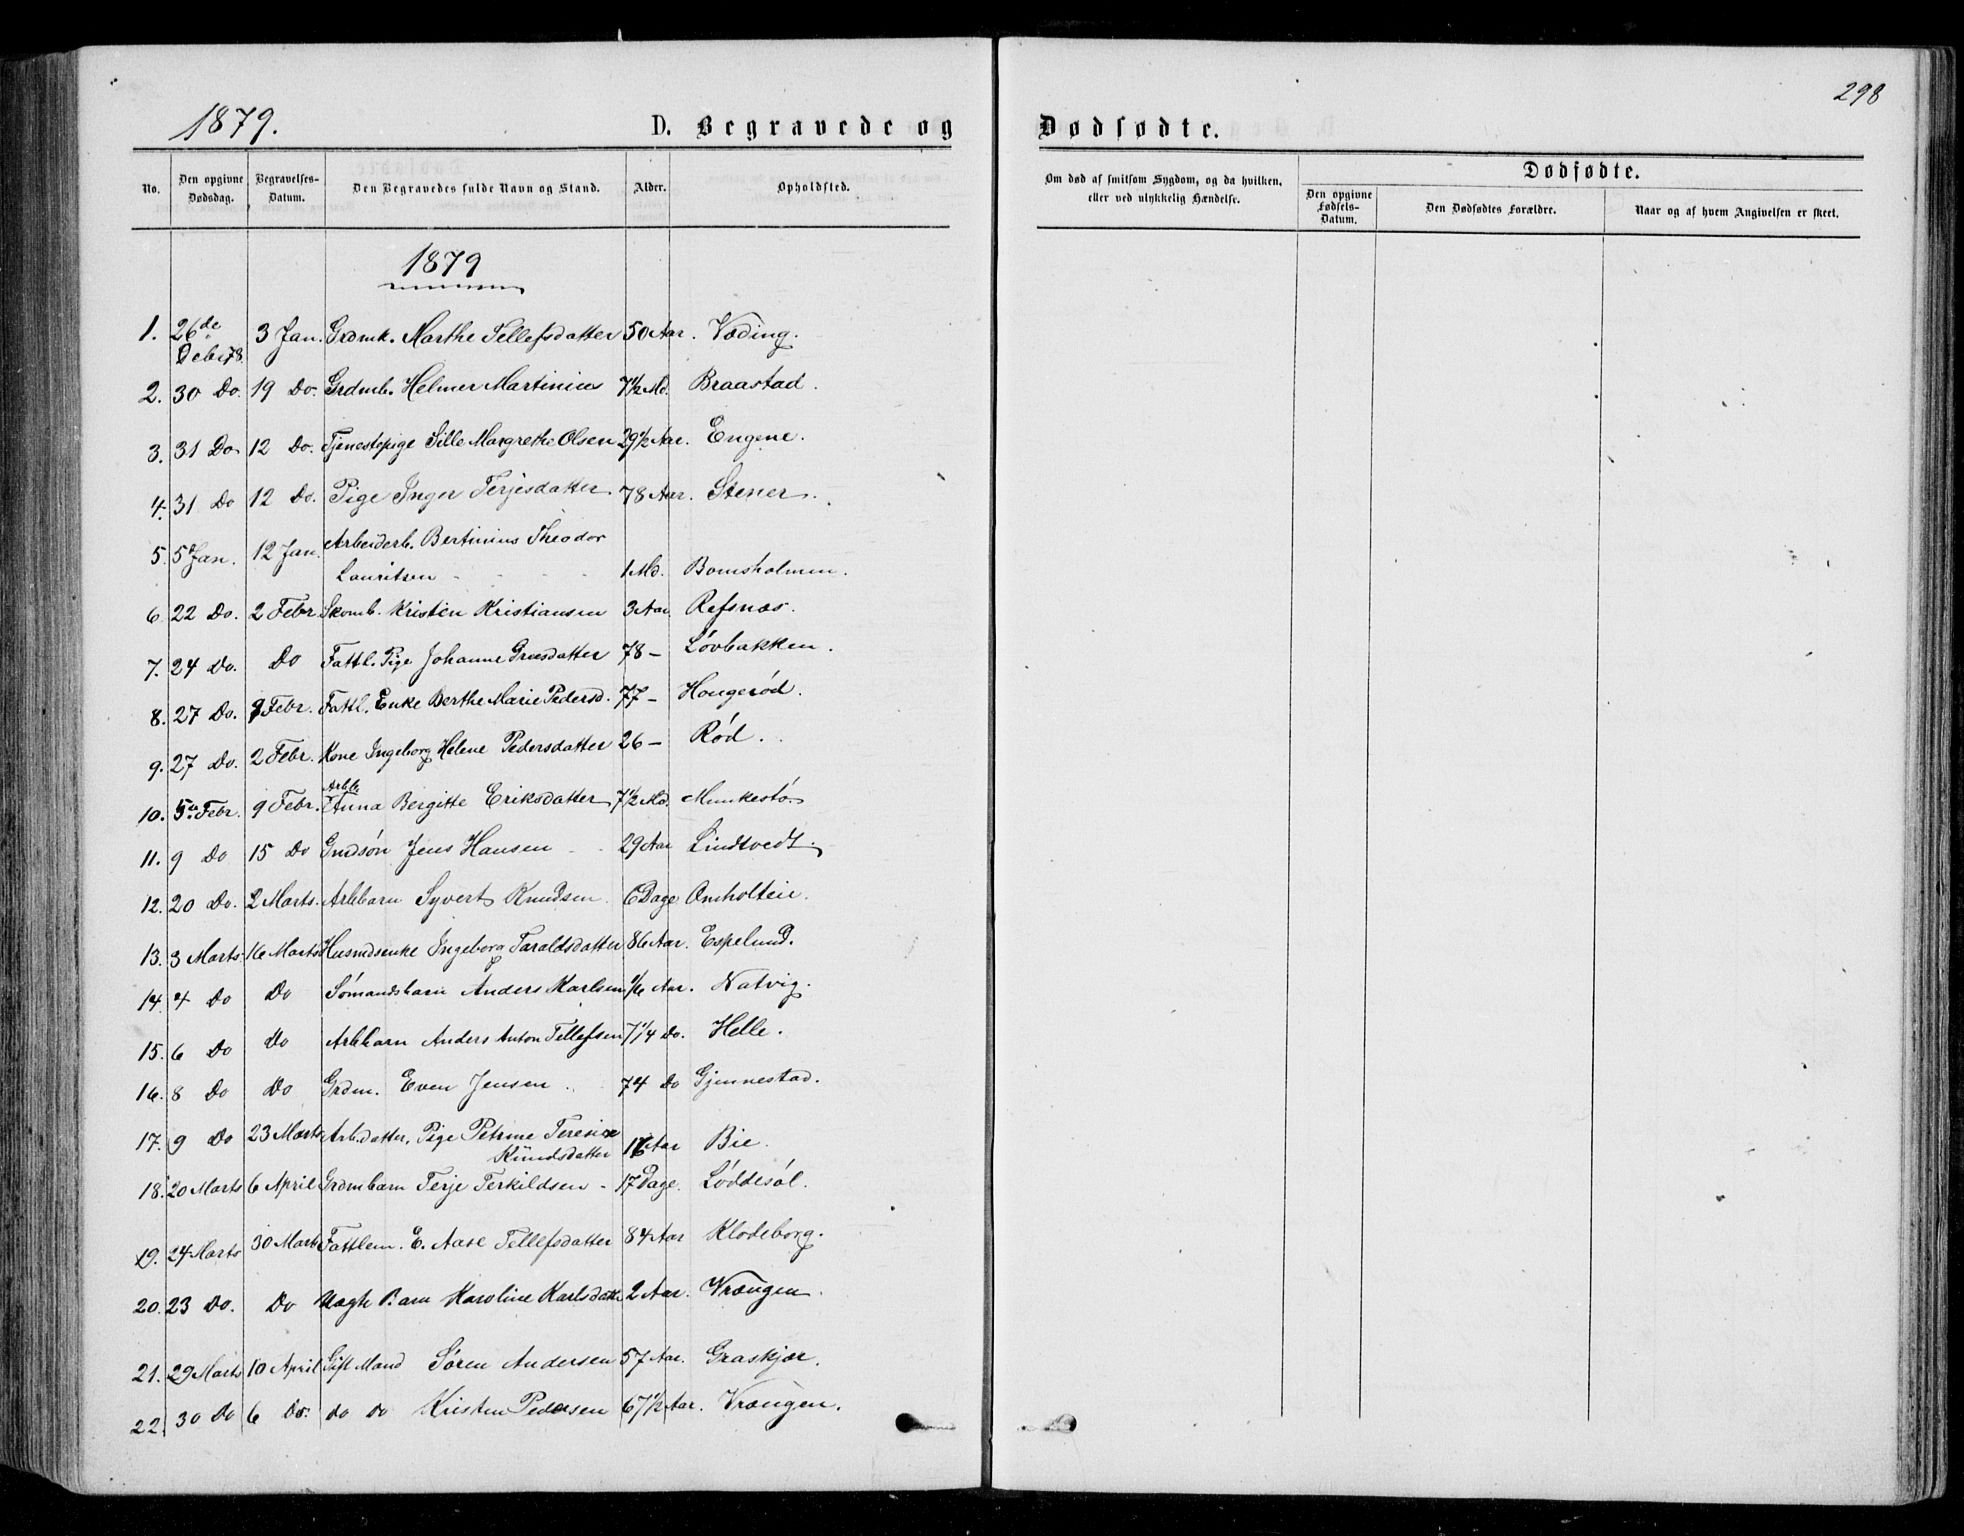 298
1879.
D. Begravede og Dødfødte.
No. | Den opgivne Dødsdag. | Begravelses-Datum. | Den Begravedes fulde Navn og Stand. | Alder. | Opholdsted.
Om død af smitsom Sygdom, og da hvilken, eller ved ulykkelig Hændelse. | Dødfødte. | Den opgivne Fødsels-Datum. | Den Dødfødtes Forældre. | Naar og af hvem Angivelsen er skeet.
1879
1. 26de Debr 78. 3 Jan. Grdmk. Marthe Tellefsdatter 50 Aar. Væding.
2. 30 Do. 19 Do. Grdmb. Helmer Martinius 7½ Md. Braastad.
3. 31 Do 12 Do. Tjenestepige Sille Margrethe Olsen 29½ Aar. Engene.
4. 31 Do 12 Do. Pige Inger Terjesdatter 78 Aar. Stener.
5. 5 Jan. 12 Jan. Arbeiderb. Bertinius Theodor
Lauritsen 1 Md. Bomsholmen.
6 22 Do. 2 Febr Skomb. Kristen Kristiansen 3 Aar. Refsnæs.
7. 24 Do. Do Fattl. Pige Johanne 78 – Løvbakken.
8. 27 Do. Febr. Fattl. Enke Berthe Marie Pedersd. 77 – Hougerød.
9. 27 Do. 2 Febr. Kone Ingeborg Helene Pedersdatter 26 – Rød.
10. 5te Febr. 9 Febr. Arbb Anna Bergitte Eriksdatter 7½ Md. Munkestø
11. 9 Do 15 Do Grdsøn Jens Hansen 29 Aar Lindtvedt.
12. 20 Do. 2 Marts. Arbbarn Syvert Knudsen. 6 Dage Omholteie.
13. 3 Marts. 16 Marts Husmdsenke Ingeborg Taraldsdatter 86 Aar. Espelund.
14. 4 Do Do Sømandsbarn Anders Karlsen 1/6 Aar. Natvig.
15. 6 Do Do Arbbarn Anders Anton Tellefsen 7 1/4 Do. Helle.
16. 8 Do Do Grdm. Even Jensen 74 Do Gjennestad.
17. 9 Do 23 Marts Arb.datter, Pige Petrine Teresie
Knudsdatter 16 Aar Bie.
18. 20 Marts 6 April Grdmbarn Terje Terkildsen - 17 Dage. Løddesøl.
19. 24 Marts 30 Marts Fattlem. E. Aase Tellefsdatter 84 Aar Klodeborg.
20. 23 Do. Do Uægte Barn Karoline Karlsdatter 2 Aar. Vrængen.
21. 29 Marts 10 April Gift Mand Søren Andersen 57 Aar. Graskjær.
22. 30 Do 6 Do. do do Kristen Pedersen 67½ Aar. Vrængen.